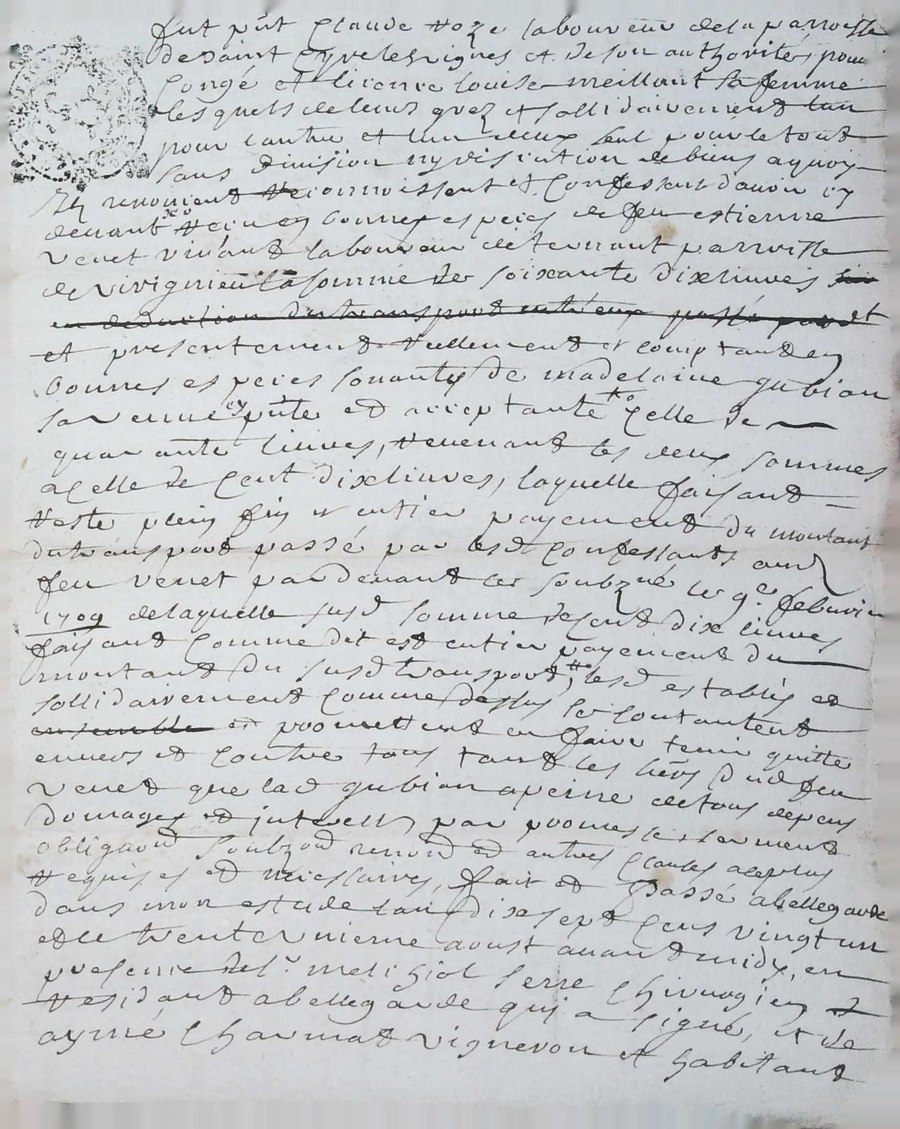 fut pnt Claude Roze laboureur de la parroisse
de Saint Cyre les vignes et de son authorité, pour
congé et licence louise meillant sa femme
lesquels de leurs grez et sollidairement lun
pour lautre et lun deux seul pour le tout
sans division ny discution de biens aquoy
Ils renoncent reconnoissent et confessent davoir cy
devant receu en bonnes especes de feu estienne
venet vivant laboureur de parroisse
de la somme de soixante dix livres
en deduction du transport passé
et presentement reellement et comptant en
bonnes especes sonantes de madelaine gubian
sa veuve cy pnte et acceptante celle de
quarante livres, revenant les deux sommes
a celle de cent dix livres, laquelle faisant
reste plein fin et entier payement du montant
du transport passé par lesd confessants aud
feu venet par devant le soubzné le 9e febvrier
1709 de laquelle susd somme de cent dix livres
faisant comme dit est entier payement du
montant du susd transport, lesd establis et
sollidairement comme dessus se contantent
ensemble et promettent en faire tenir quitte
envers et contre tous tant les hers dud feu
venet que lad gubian a peine de tous depens
domages et interests par promesse serment
obligaond soubzond renond et autres clauses a ce plus
requises et necessaires, fait et passé a bellegarde
dans mon estude lan dix sept cens vingt un
et le trente unieme aoust avant midy, en
presence de sr. serre chirurgien
residant a bellegarde qui a signé, et de
aymé charmat vigneron et habitant